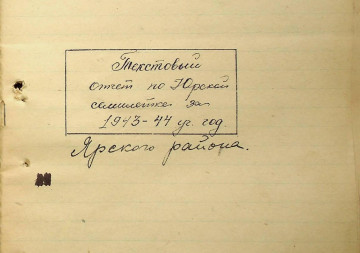 Текстовый
отчет по Юрской
семилетке за
1943-44 уч. год.
Ярского района.